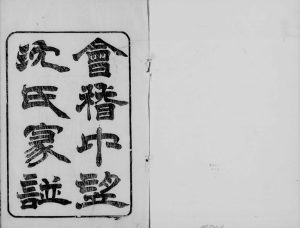 會稽中望
沈氏家譜